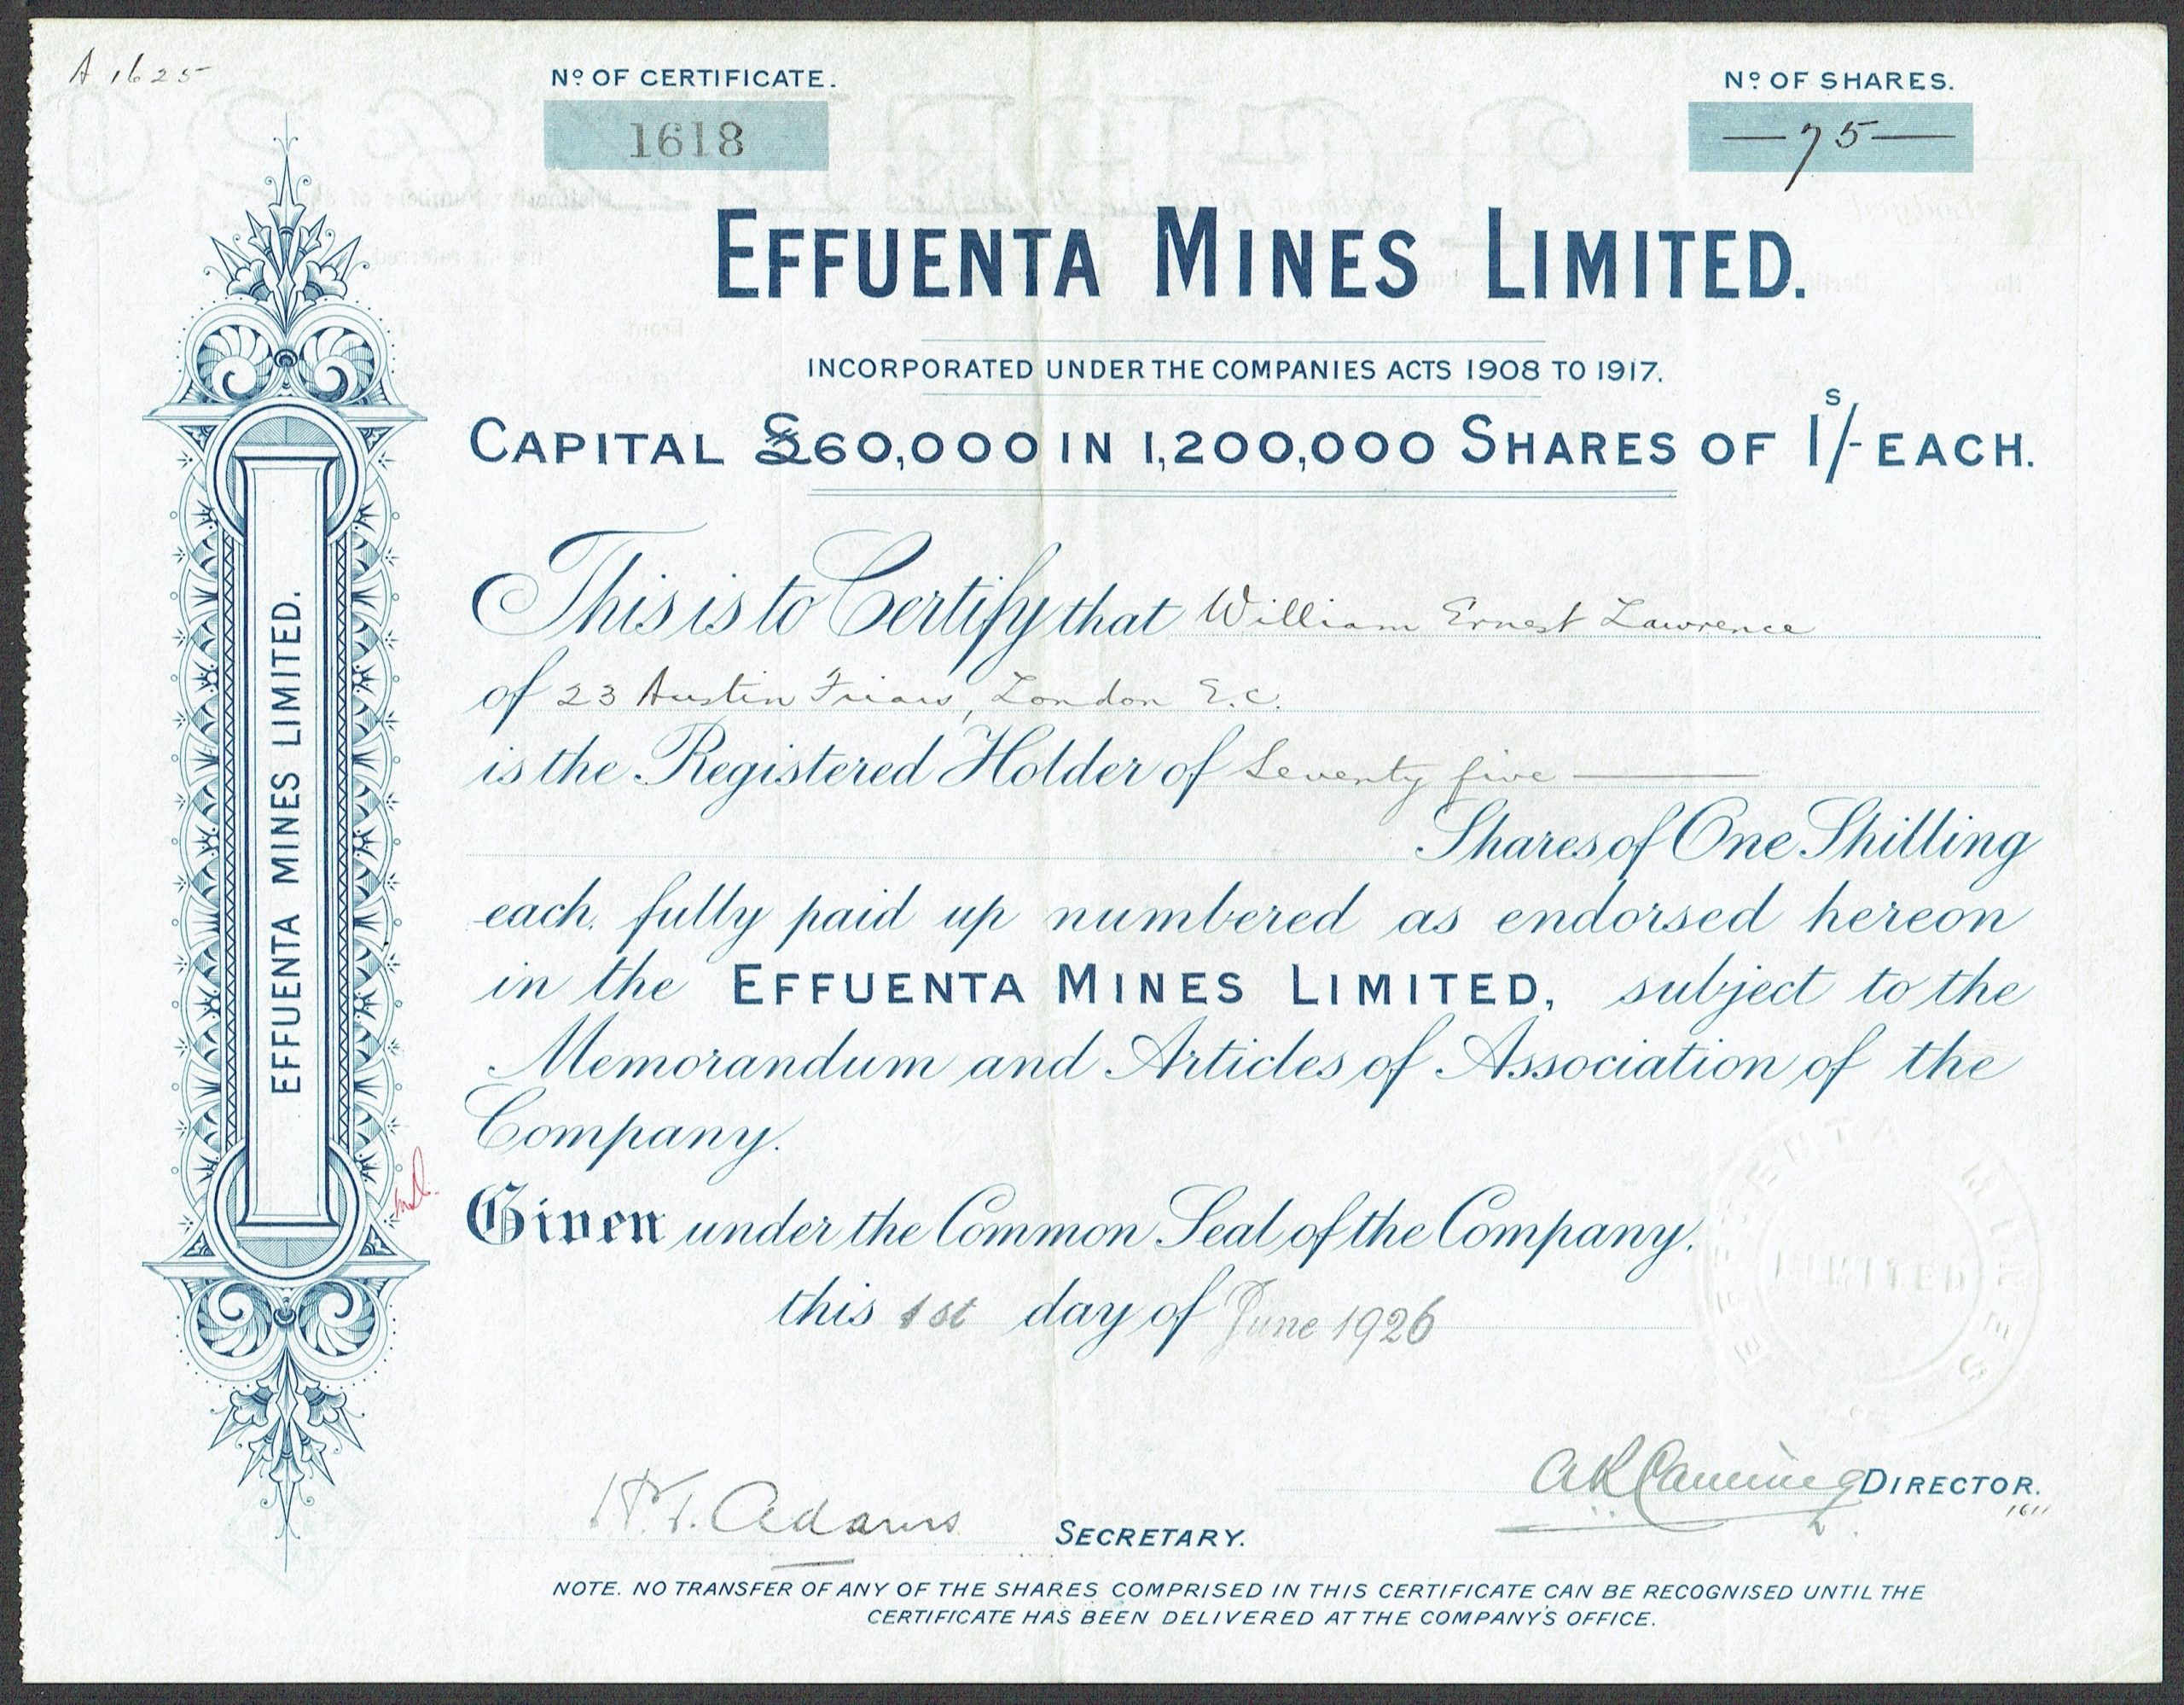 A 1625
Nº OF CERTIFICATE.
1618
Nº OF SHARES.
—75—
EFFUENTA MINES LIMITED.
INCORPORATED UNDER THE COMPANIES ACTS 1908 TO 1917.
CAPITAL £60,000 IN 1,200,000 SHARES OF 1s/- EACH.
EFFUENTA MINES LIMITED.
This is to Certify that William Ernest Lawrence
of 23 Austin Friars, London E.C.
is the Registered Holder of Seventy five
Shares of One Shilling
each, fully paid up numbered as endorsed hereon
in the EFFUENTA MINES LIMITED, subject to the
Memorandum and Articles of Association of the
Company.
Given under the Common Seal of the Company.
this 1st day of June 1926
EFFUENTA MINES
LIMITED
A K Canning DIRECTOR.
1611
H. T. Adams SECRETARY.
NOTE. NO TRANSFER OF ANY OF THE SHARES COMPRISED IN THIS CERTIFICATE CAN BE RECOGNISED UNTIL THE
CERTIFICATE HAS BEEN DELIVERED AT THE COMPANY'S OFFICE.